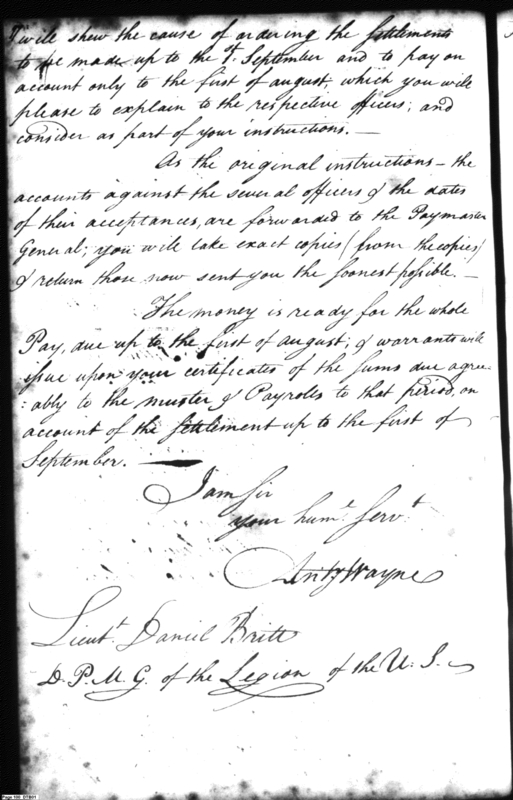 will shew the cause of ordering the settlements
to be made up to the 1st. September and to pay on
account only to the first of august, which you will
please to explain to the respective officers; and
consider as part of your instructions. —
As the original instructions - the
accounts against the several officers & the dates
of their acceptances, are forwarded to the Paymaster
General; you will take exact copies (from the copies)
& return those now sent you the soonest possible. —
The money is ready for the whole
Pay, due up to the first of august; & warrants will
issue upon your certificates of the sums due agree-
:ably to the muster & Payroles to that period, on
account of the settlement up to the first of
September. —
I am Sir
your humle. Servt.
Anty Wayne
Lieut. Daniel Britt
D. P. M. G. of the Legion of the U. S.
Page 100